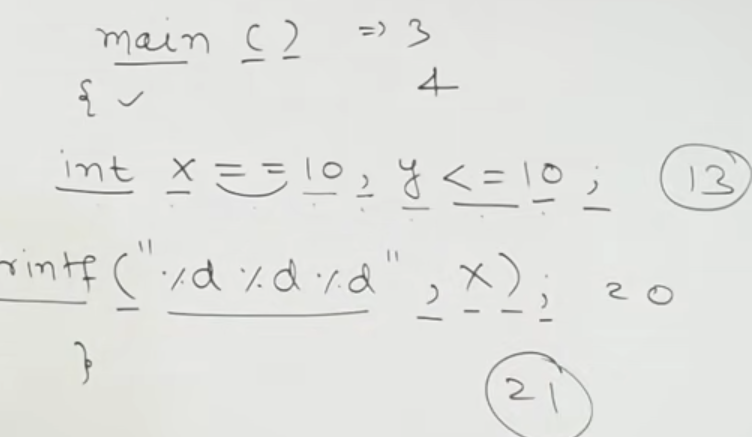 main () => 3
{ ✓ 4
int x = = 10, y <= 10 ; 13
rintf ("%d %d %d", x); 20
}
21